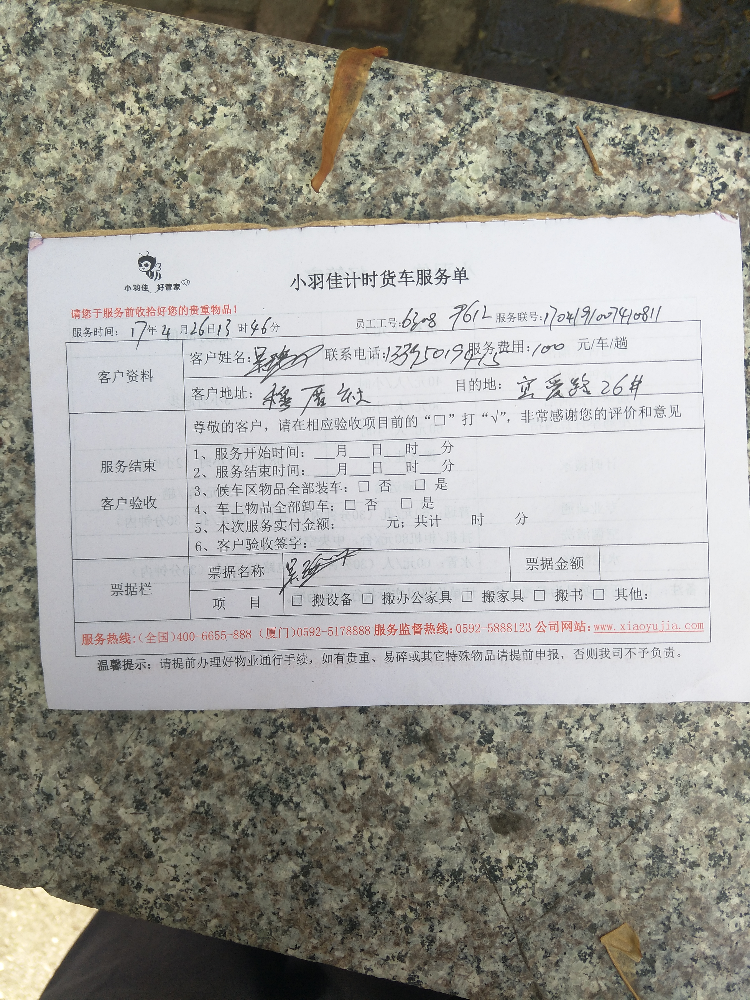 小羽佳 好管家
小羽佳计时货车服务单
请您于服务前收拾好您的贵重物品！
服务时间：17年4月26日13时46分 员工工号：6308 9612 服务联号：1704191007410811
客户资料
客户姓名： 联系电话： 服务费用：100 元/车/趟
客户地址： 目的地：宜爱路26#
尊敬的客户，请在相应验收项目前的“□”打“√”，非常感谢您的评价和意见
服务结束
客户验收
1、服务开始时间：___月___日___时___分
2、服务结束时间：___月___日___时___分
3、候车区物品全部装车：□ 否 □ 是
4、车上物品全部卸车：□ 否 □ 是
5、本次服务实付金额： 元；共计 时 分
6、客户验收签字：
票据栏
票据名称 票据金额
项 目 □ 搬设备 □ 搬办公家具 □ 搬家具 □ 搬书 □ 其他：
服务热线：（全国）400-6655-888（厦门）0592-5178888 服务监督热线：0592-5888123 公司网站：www.xiaoyujia.com
温馨提示：请提前办理好物业通行手续，如有贵重、易碎或其它特殊物品请提前申报，否则我司不予负责。